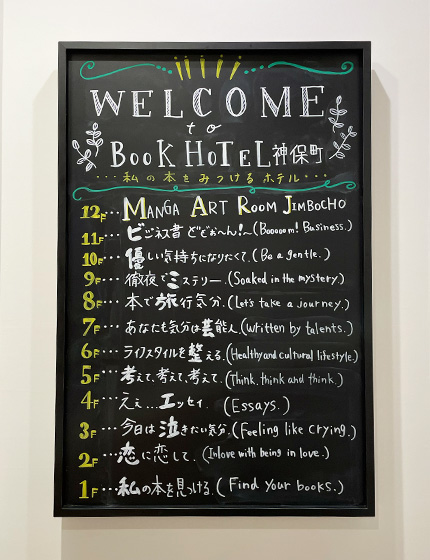 WELCOME
to
BOOK HOTEL 神保町
・・・私の本をみつけるホテル・・・
12F・・・MANGA ART ROOM JIMBOCHO
11F・・・ビジネス書 どどぉ〜ん!〜(Booooom! Business.)
10F・・・優しい気持ちになりたくて。(Be a gentle.)
9F・・・徹夜でミステリー。(Soaked in the mystery.)
8F・・・本で旅行気分。(Let's take a journey.)
7F・・・あなたも気分は芸能人。(Written by talents.)
6F・・・ライフスタイルを整える。(Healthy and cultural lifestyle.)
5F・・・考えて、考えて、考えて。(Think, think and think.)
4F・・・ええ...エッセイ。(Essays.)
3F・・・今日は泣きたい気分。(Feeling like crying.)
2F・・・恋に恋して。(In love with being in love.)
1F・・・私の本を見つける。(Find your books.)